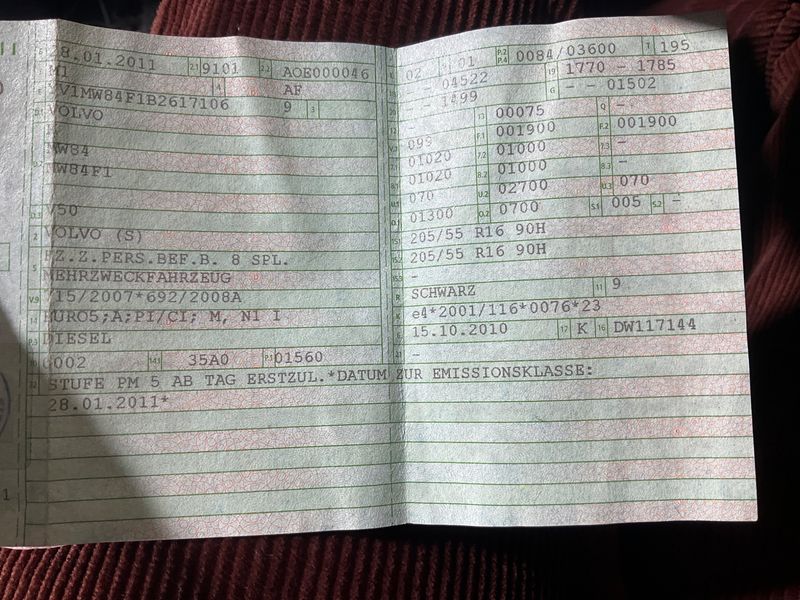 28.01.2011 2.1 9101 2.2 AOE000046
M1 4 AF
YV1MW84F1B2617106 9 3
VOLVO
MW84
MW84F1
V50
2 VOLVO (S)
5 FZ.Z.PERS.BEF.B. 8 SPL.
MEHRZWECKFAHRZEUG
V.9 715/2007*692/2008A
EURO5;A;PI/CI; M, N1 I
P.3 DIESEL
10 0002 14.1 35A0 P.1 01560
22 STUFE PM 5 AB TAG ERSTZUL.*DATUM ZUR EMISSIONSKLASSE:
28.01.2011*
02 01 P.2 P.4 0084/03600 T 195
- - 04522 19 1770 - 1785
- - 1499 G - - 01502
- 13 00075 Q -
099 F.1 001900 F.2 001900
01020 7.2 01000 7.3 -
01020 8.2 01000 8.3 -
070 U.2 02700 U.3 070
01300 O.2 0700 S.1 005 S.2 -
205/55 R16 90H
205/55 R16 90H
-
R SCHWARZ 11 9
K e4*2001/116*0076*23
15.10.2010 17 K 16 DW117144
21 -
1